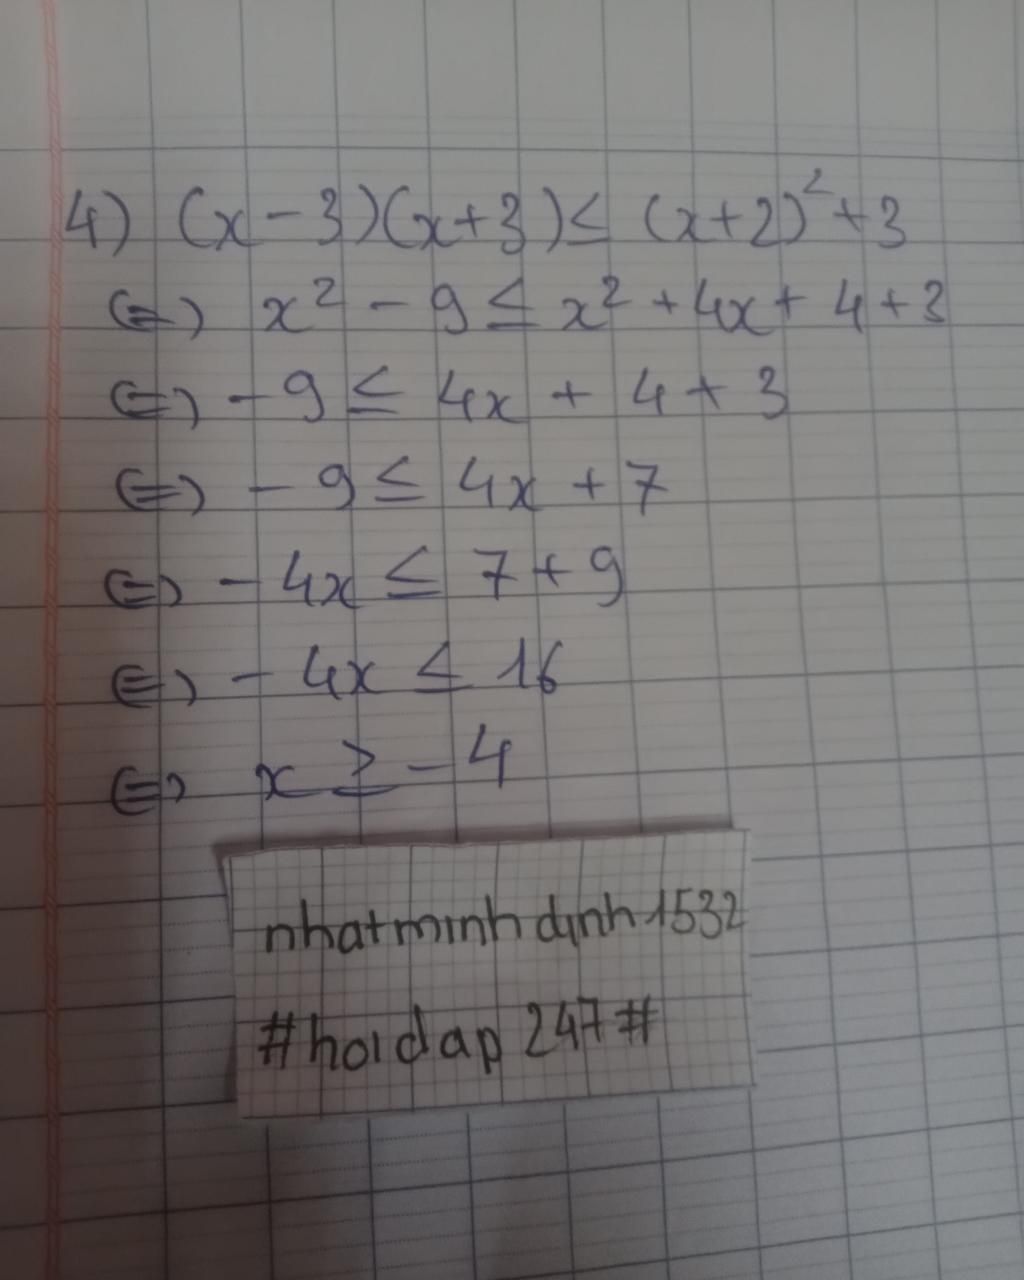 4) (x-3)(x+3) ≤ (x+2)² + 3
⇔ x² - 9 ≤ x² + 4x + 4 + 3
⇔ - 9 ≤ 4x + 4 + 3
⇔ - 9 ≤ 4x + 7
⇔ - 4x ≤ 7 + 9
⇔ - 4x ≤ 16
⇔ x ≥ - 4
nhatminhdinh1532
#hoidap247#